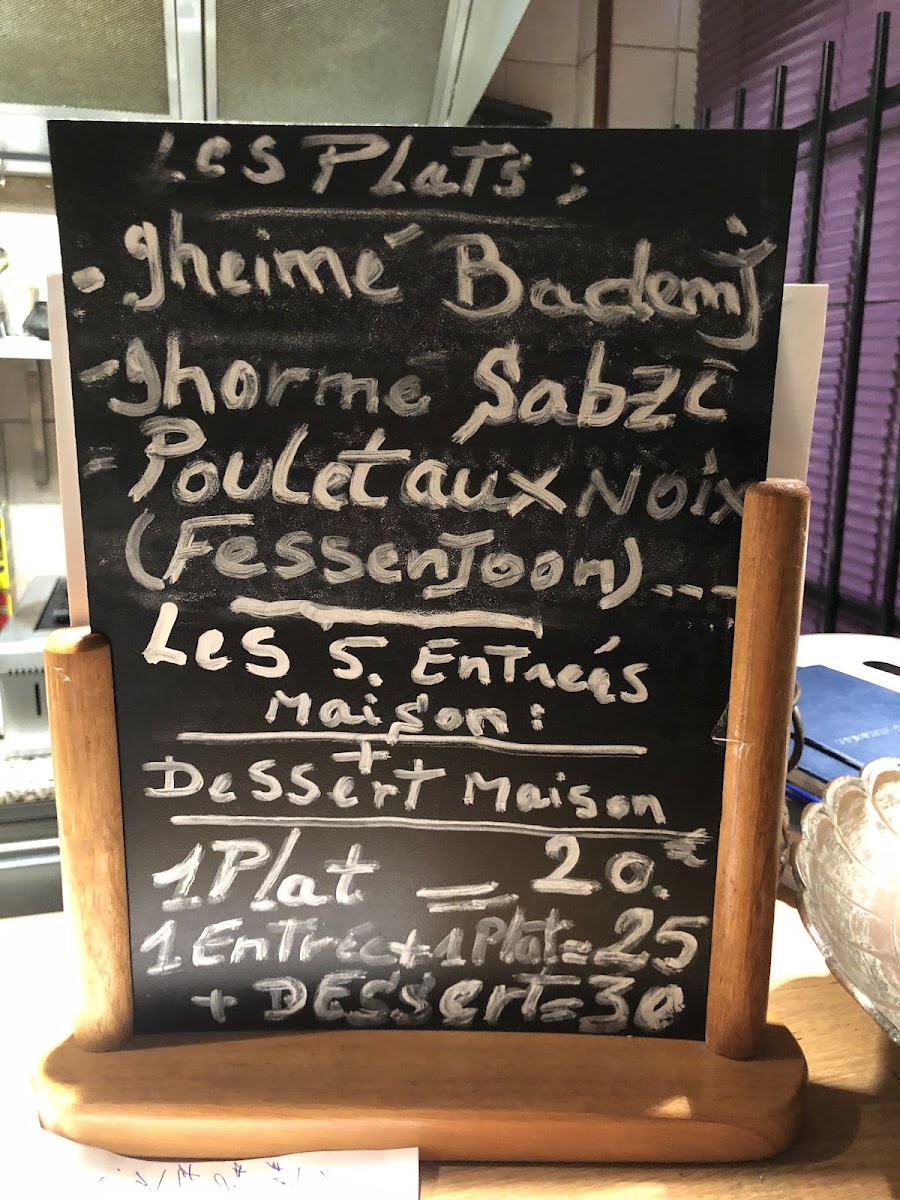 Les Plats :
- Gheimé Bademj
- Ghormé Sabzi
- Poulet aux Noix
(Fessenjoon) ----
Les 5. Entrées
Maison :
+
Dessert Maison
1 Plat = 20.€
1 Entrée + 1 Plat = 25
+ DESSert = 30